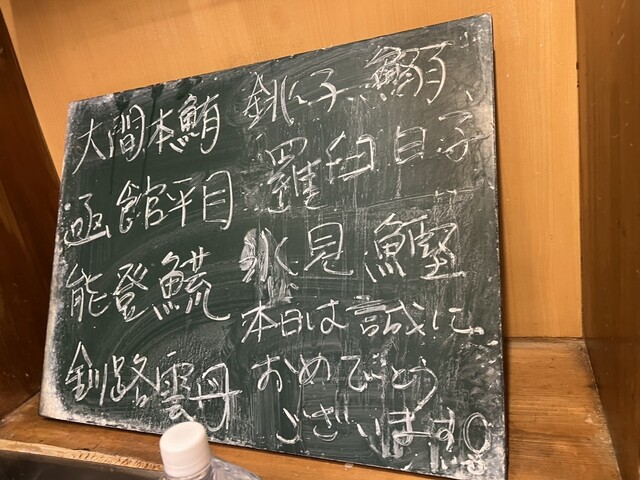 大間本鮪
函館平目
能登𩺊
釧路雲丹
銚子 鰯
羅臼白子
氷見鰹
本日は誠に
おめでとう
ございます。